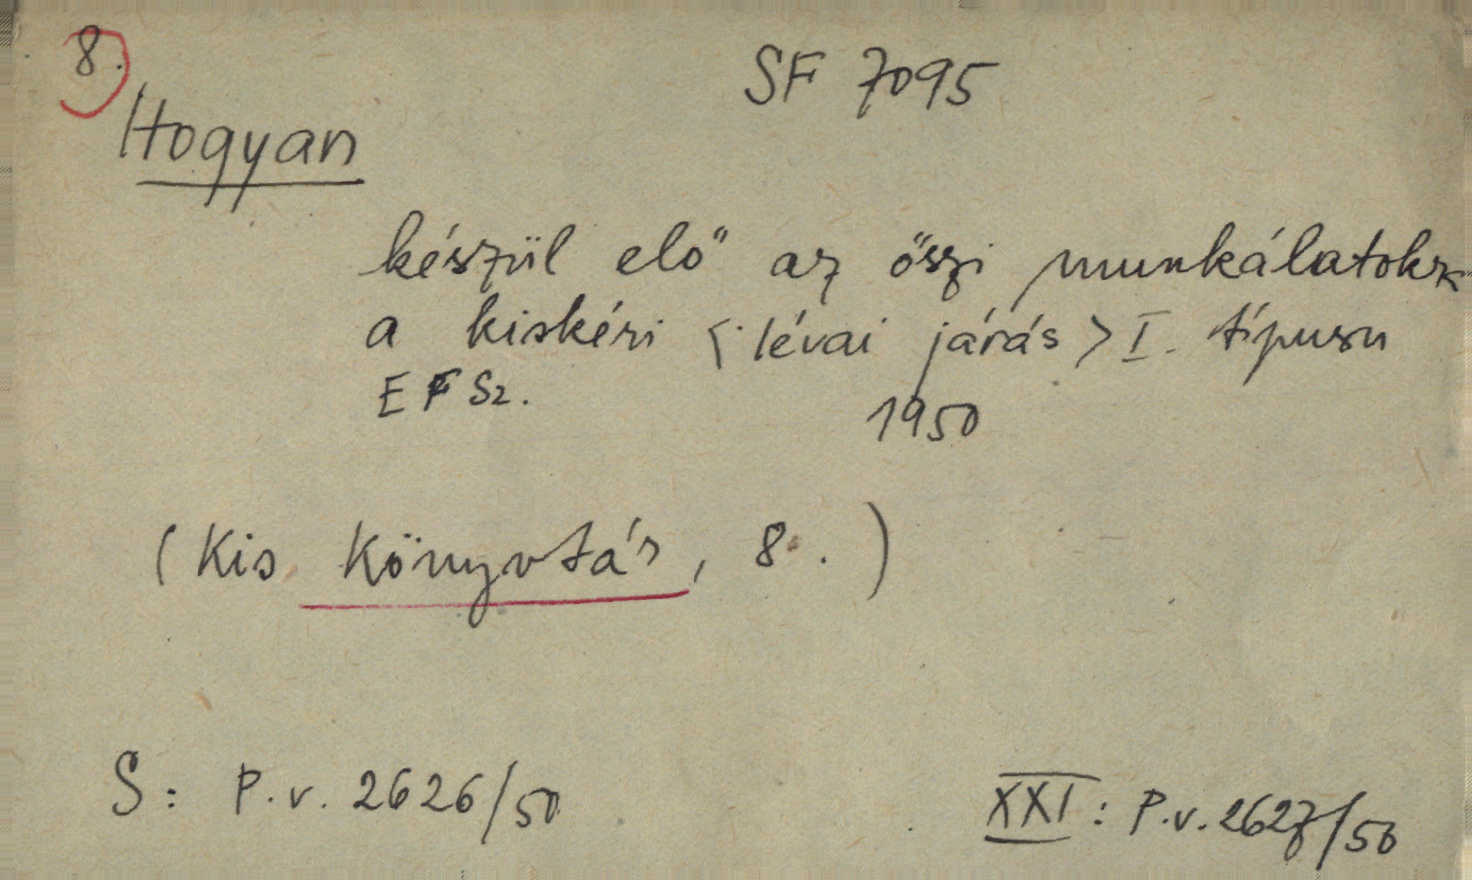 8.
SF 7095
Hogyan
készül elő az őszi munkálatokra
a kiskéri <lévai járás> I. típusu
EFSz.
1950
(Kis Könyvtár, 8.)
S: P.v. 2626/50
XXI: P.v. 2627/50